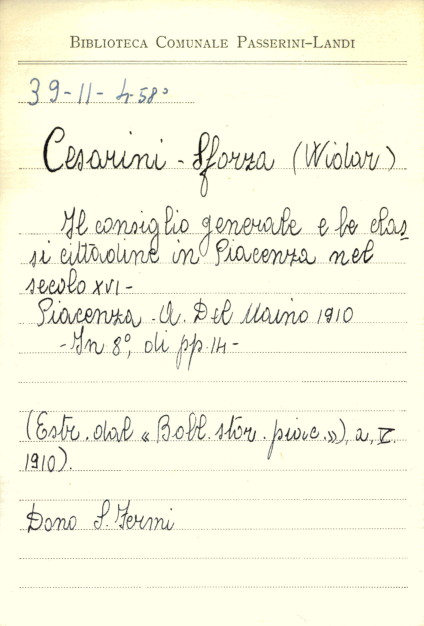 BIBLIOTECA COMUNALE PASSERINI-LANDI
39-11-4-58°
Cesarini - Sforza (Widar)
Il consiglio generale e le clas_
si cittadine in Piacenza nel
secolo XVI -
Piacenza. A. Del Maino 1910
- In 8°, di pp. 14 -
(Estr. dal « Boll. stor. piac. »), a. V.
1910).
Dono S. Fermi